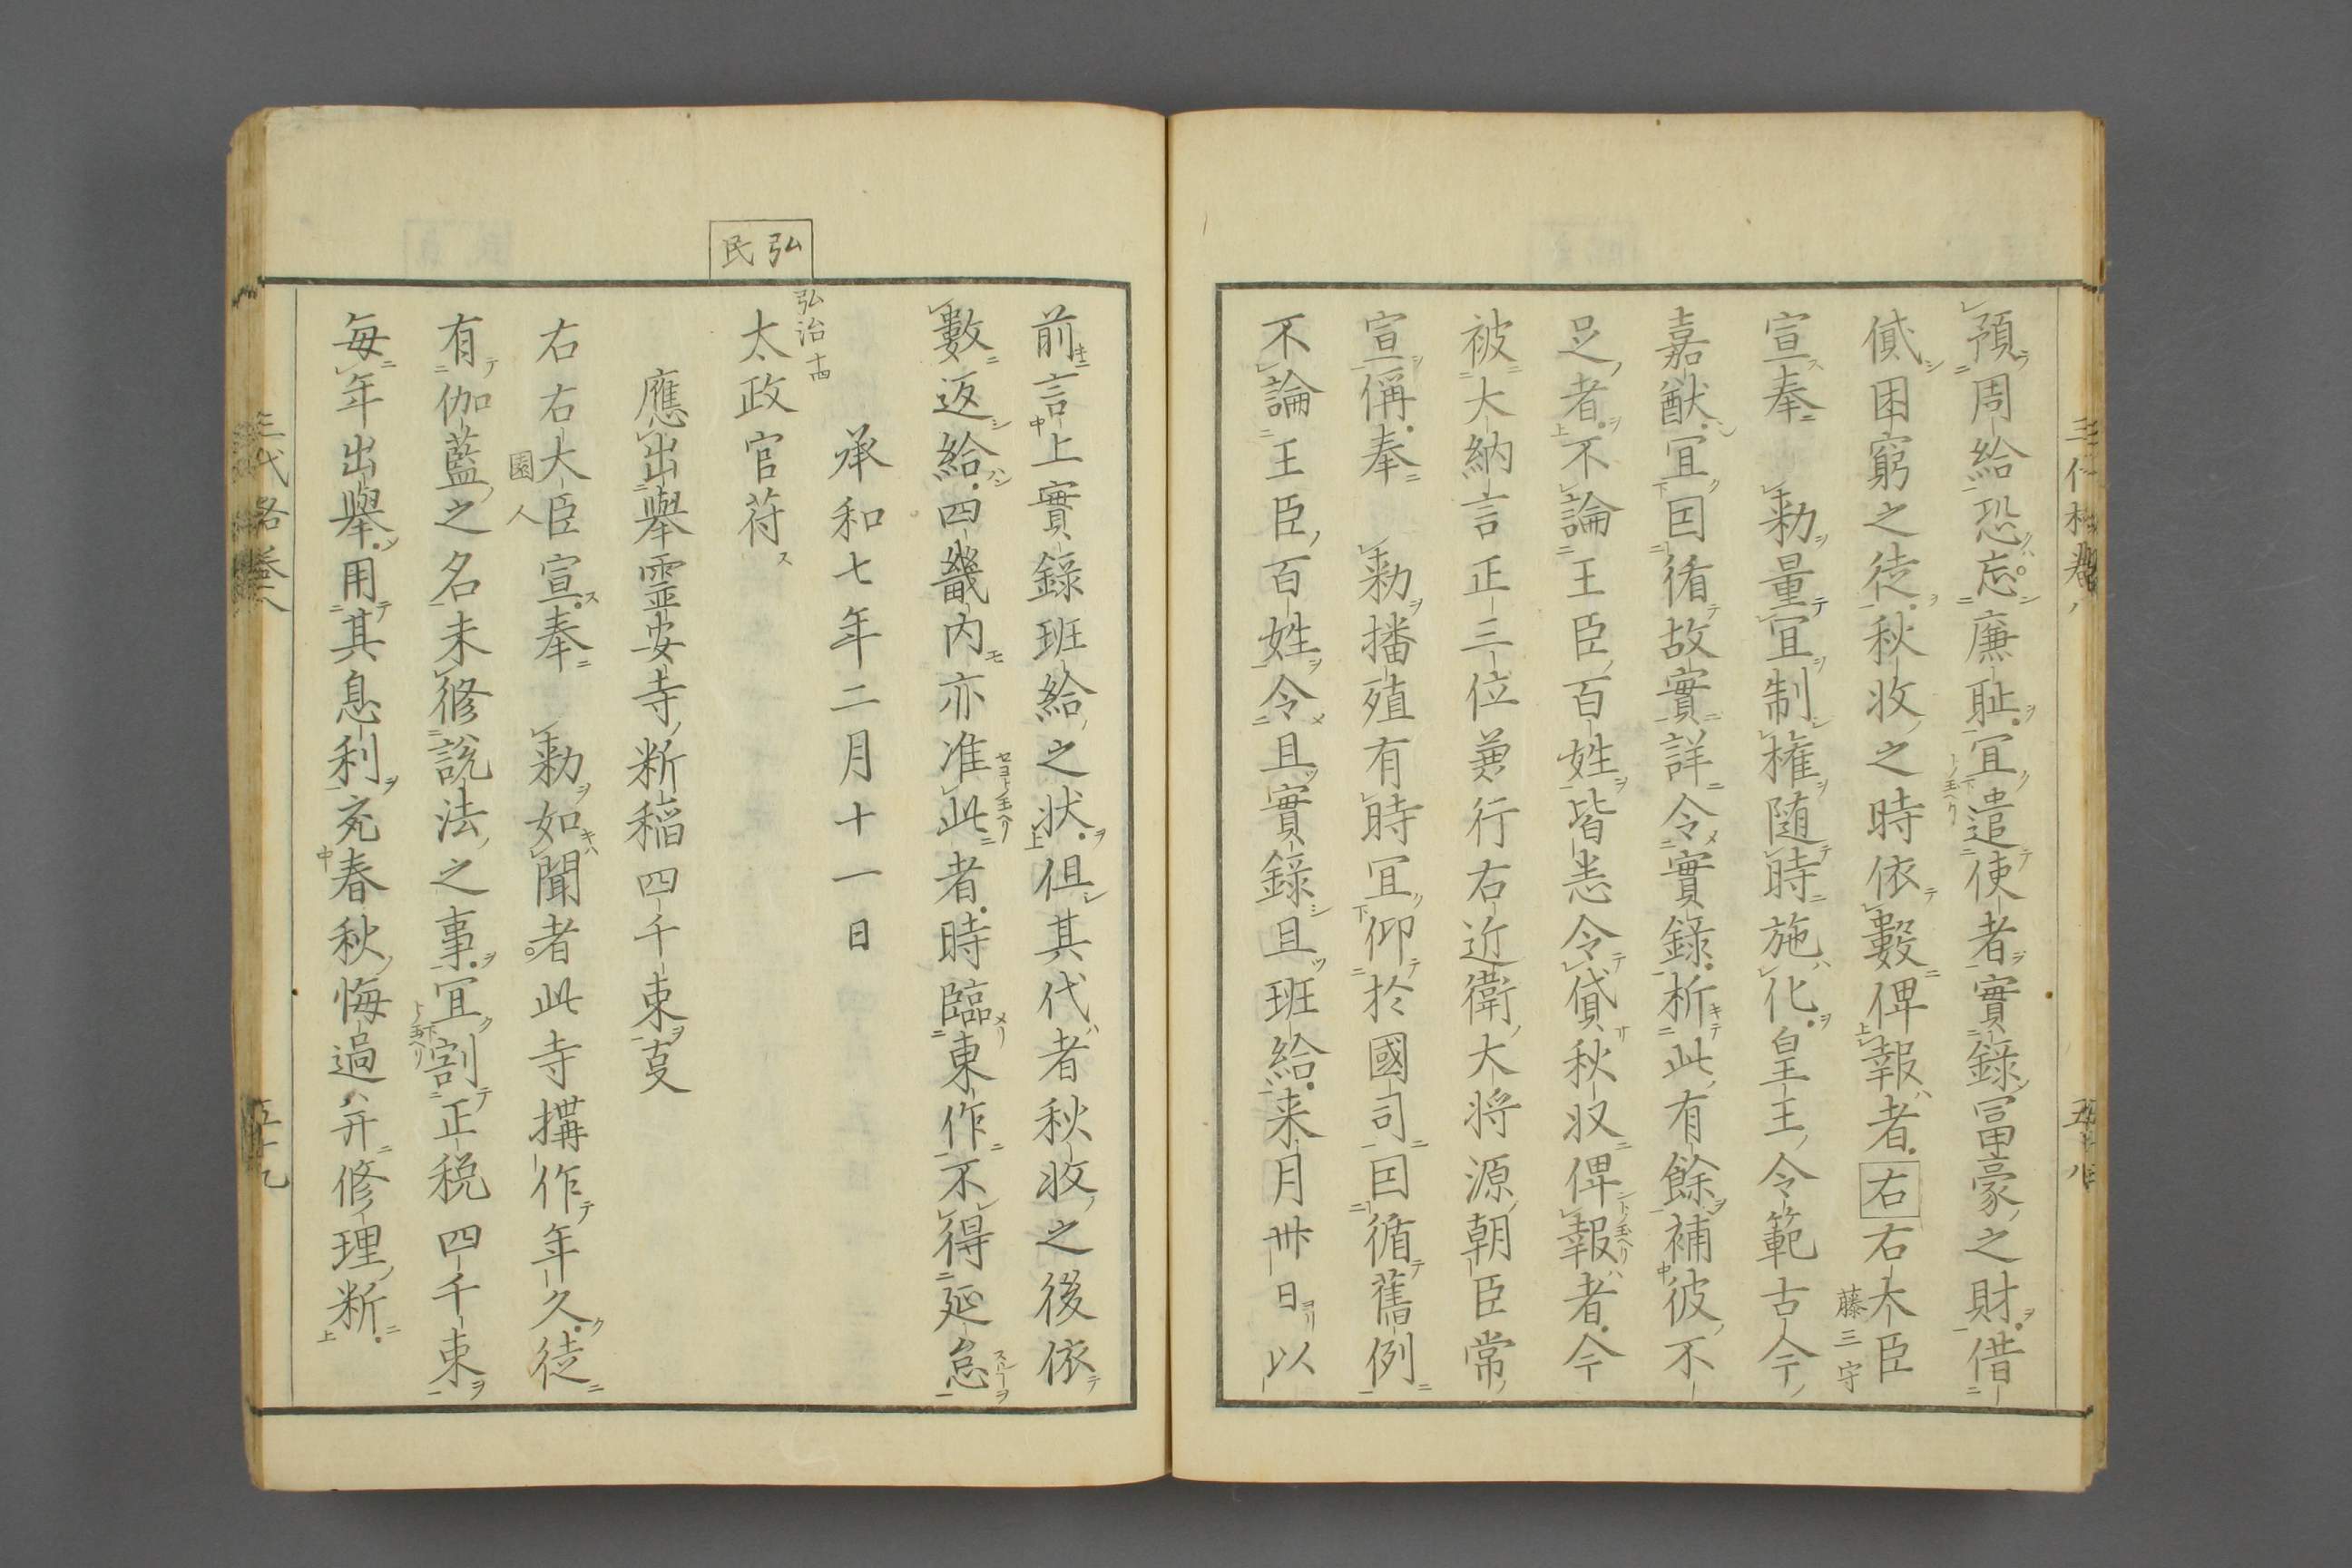 預周給恐忘廉耻宜遣使者實錄冨豪之財借
貸困窮之徒秋収之時依數俾報者右右大臣
藤三守
宣奉勅量宜制権随時施化皇王令範古今
嘉猷宜因循故實詳令實錄析此有餘補彼不
足者不論王臣百姓皆悉令貸秋収俾報者今
被大納言正三位兼行右近衛大将源朝臣常
宣偁奉勅播殖有時宜仰於國司因循舊例
不論王臣百姓令且實錄且班給来月卅日以
前言上實錄班給之状但其代者秋収之後依
數返給四畿内亦准此者時臨東作不得延怠
承和七年二月十一日
弘民
弘治十四
太政官苻
應出舉霊安寺断稲四千束㕝
右右大臣宣奉勅如聞者此寺搆作年久徒
園人
有伽藍之名未修説法之事宜割正税四千束
毎年出舉用其息利充春秋悔過并修理断